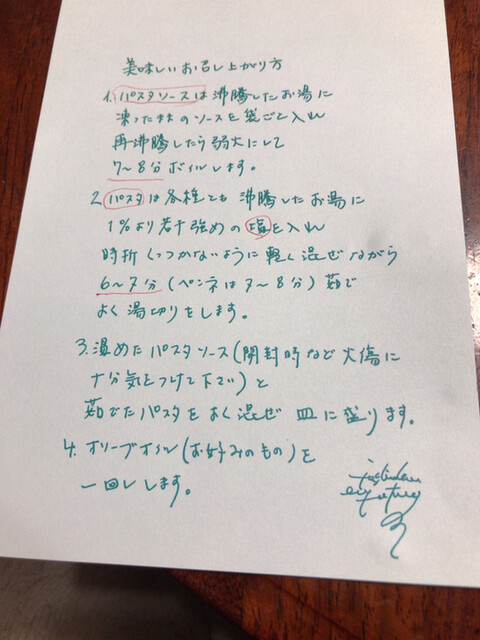 美味しいお召し上がり方
1. パスタソースは沸騰したお湯に
凍ったままのソースを袋ごと入れ
再沸騰したら弱火にして
7〜8分ボイルします。
2. パスタは各種とも沸騰したお湯に
1%より若干強めの塩を入れ
時折くっつかないように軽く混ぜながら
6〜7分(ペンネは7〜8分)茹で
よく湯切りをします。
3. 温めたパスタソース(開封時など火傷に
十分気をつけて下さい)と
茹でたパスタをよく混ぜ 皿に盛ります。
4. オリーブオイル(お好みのもの)を
一回しします。